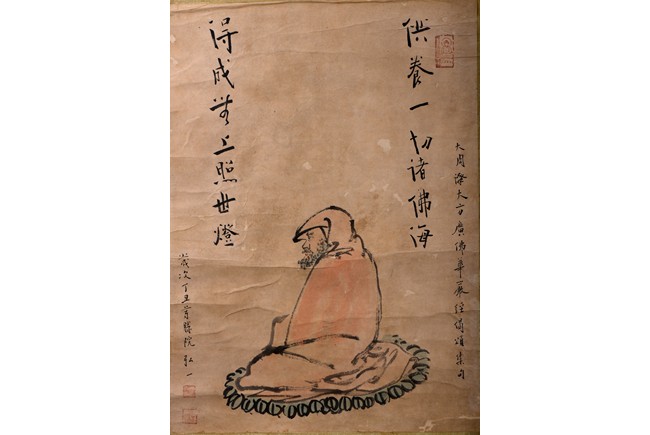 供養一切諸佛海
大周譯大方廣佛華嚴經偈頌集句
得成無上照世燈
歲次丁丑院弘一